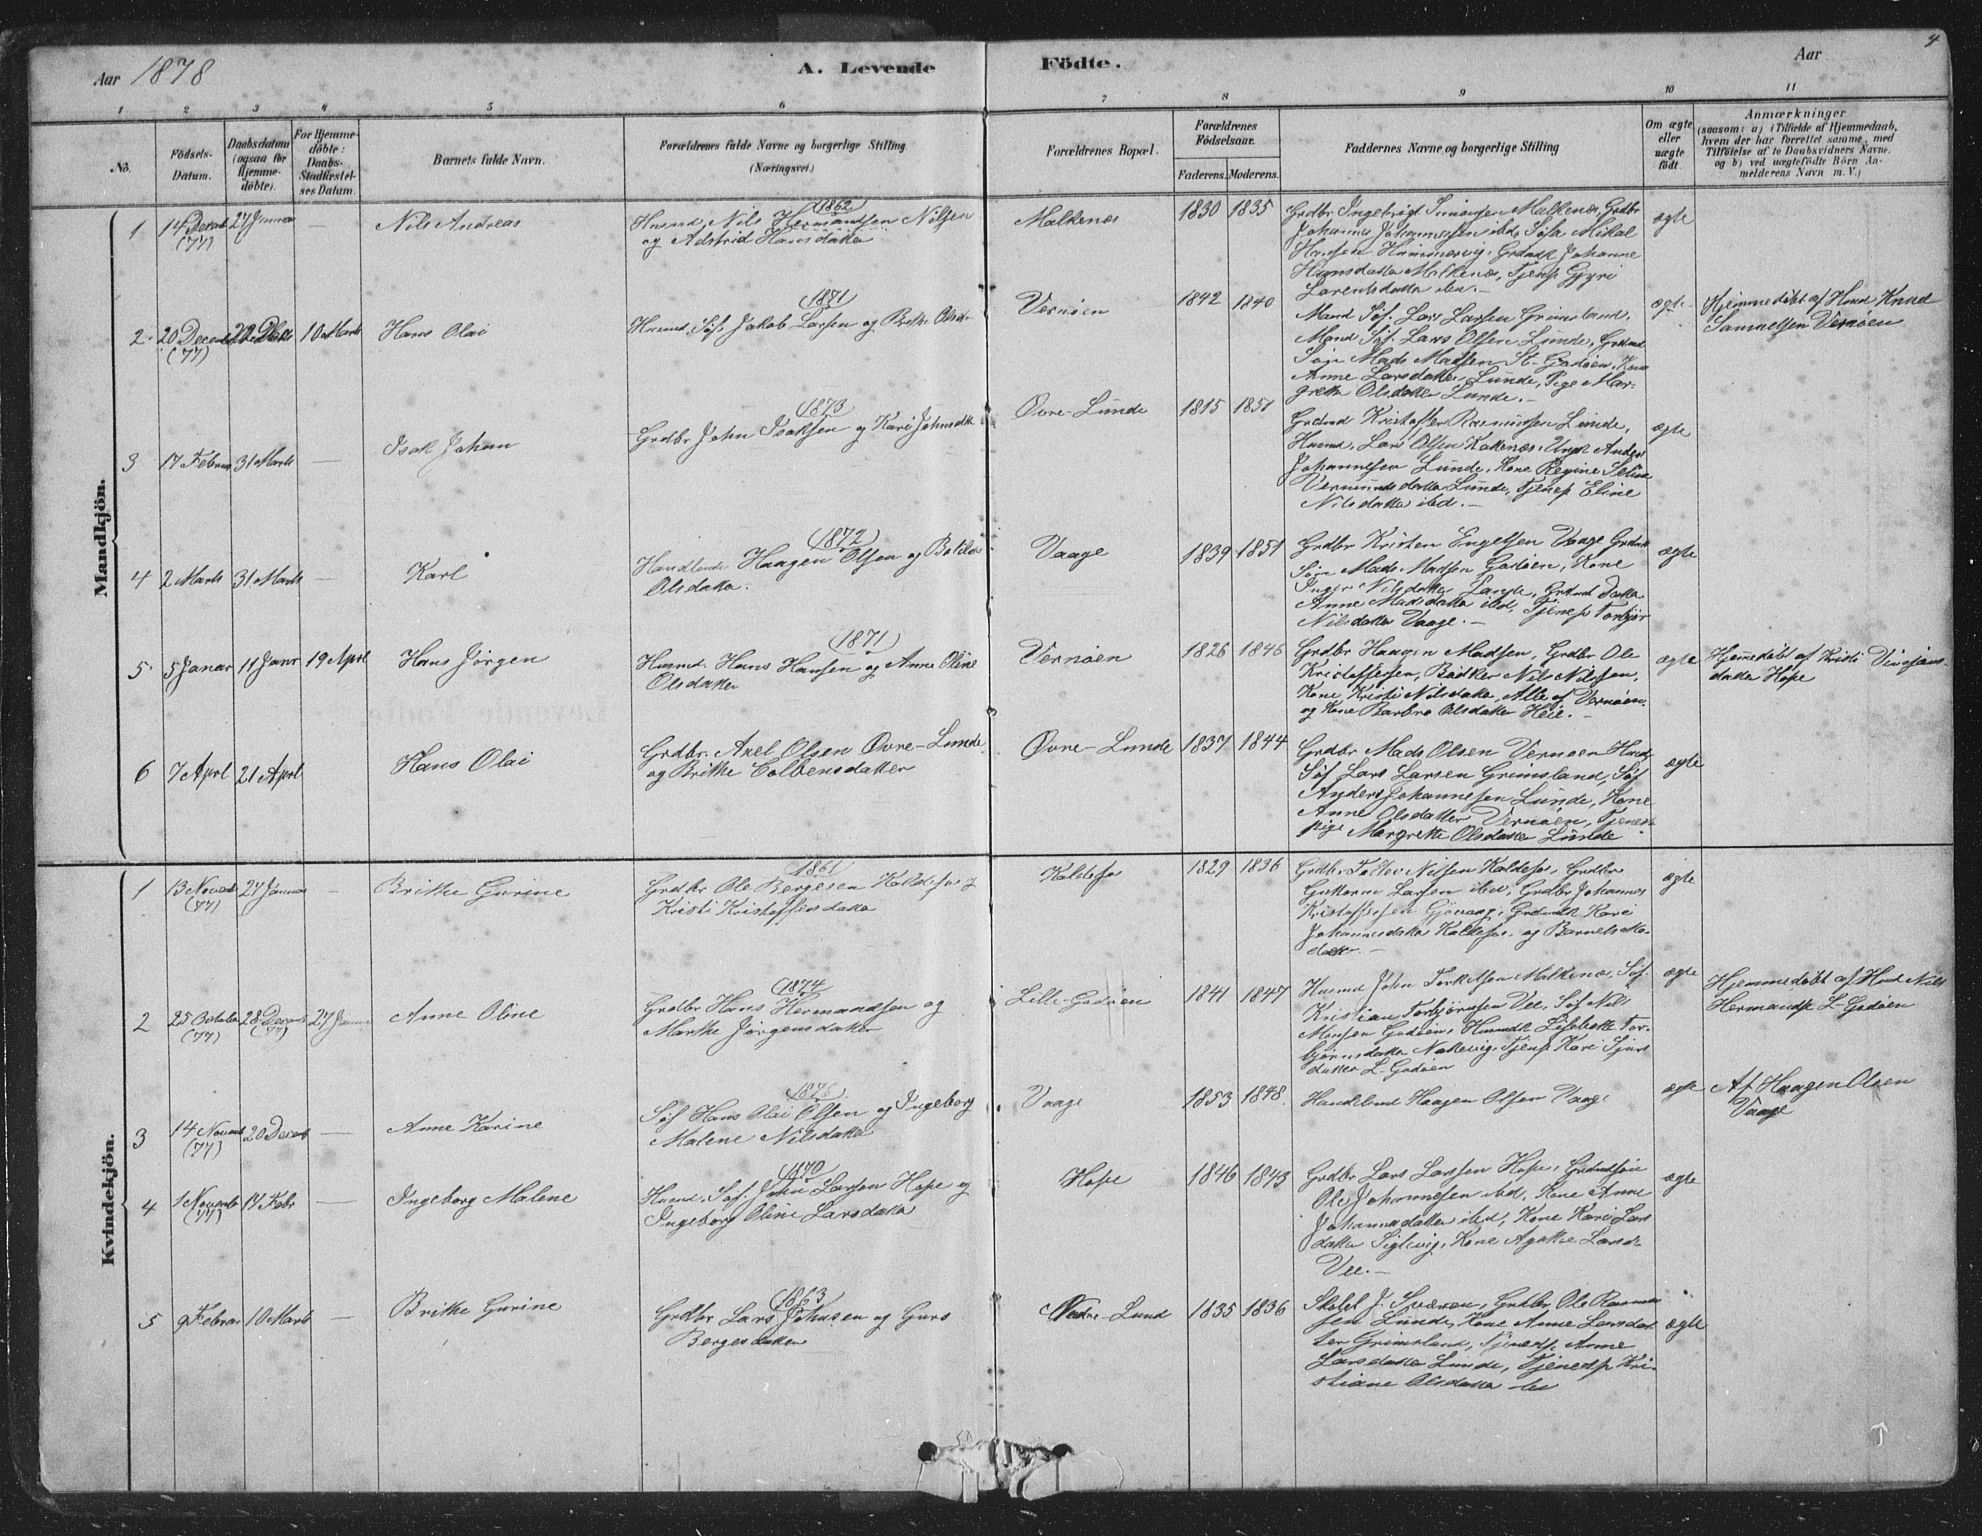 Aar 1878
A. Levende Födte.
Aar
4
1 2 3 4 5 6 7 8 9 10 11
No.
Födsels-Datum.
Daabsdatum (ogsaa for Hjemme-döbte).
For Hjemme-döbte: Daabs-Stadfæstel-ses Datum.
Barnets fulde Navn.
Forældrenes fulde Navne og borgerlige Stilling. (Næringsvei.)
Forældrenes Bopæl.
Forældrenes Födselsaar.
Faderens. Moderens.
Faddernes Navne og borgerlige Stilling
Om ægte eller uægte födt.
Anmærkninger
(saasom: a) i Tilfælde af Hjemmedaab,
hvem der har forrettet samme, med
Tilföielse af to Daabsvidners Navne.
og b) ved uægtefödte Börn An-
melderens Navn m. V.)
Mandkjön.
1 14 Decemb (77) 27 Januar — Nils Andreas
1862
Husmd. Nils Hermandsen Nilsen
og Adstrid Hansdatter
Malkenæs 1830 1835
Grdbr Ingebrigt Simonsen Malkenæs, Grdbr
Johannes Johannessen ibd, Søfa Mikal
Hansen
Hansdatter Malkenæs, Tjenp Gyri
Larentsdatter ibd.—
ægte
2 20 Decemb (77) 10 Marts Hans Olai
1871
Husmd. Søf. Jakob Larsen og Brithe Olsd.
Vernøen 1842 1840
Mand Søf. Lars Larsen Grimsland,
Mand Søf. Lars Olsen Lunde, Grdmd
Søn Mads Madsen St. Godøen, Kone
Anne Larsdatter Lunde, Pige Mar-
grethe Olsdatter Lunde.—
ægte
Hjemmedøbt af Husmd Knud
Samuelsen Vernøen
3 17 Februar 31 Marts — Isak Johan
1873
Grdbr John Isaksen og Kari Johnsdtr
Øvre-Lunde 1815 1851
Grdmd Kristoffer Rasmussen Lunde,
Husmd. Lars Olsen Kakenæs, Ungk Anders
Johannesen Lunde, Kone Regine Seline
Vermundsdatter Lunde, Tjenep Eline
Nilsdatter ibd.—
ægte
4 2 Marts 31 Marts — Karl
1872
Handlende Haagen Olsen og
Olsdatter.
Vaage 1839 1851
Grdbr Kristen Engelsen Vaage Grdmds
Søn Mads Madsen Godøen, Kone
Inger Nilsdatter
Anne Madsdatter ibd, Tjenep Torbjør
Nilsdatter Vaage.—
ægte
5 5 Januar 11 Januar 19 April Hans Jørgen
1871
Husmd. Hans Hansen og Anne Oline
Olsdatter
Vernøen 1826 1846
Grdbr Haagen Madsen, Grdbr Ole
Kristoffersen, Bødker Nils Nilssen,
Kone Kristi Nilsdatter, Alle af Vernøen,
og Kone Barbro Olsdatter Heie.—
ægte
Hjemedøbt af Kristi
datter Hope
6 7 Aprl 21 Aprl Hans Olai
Grdbr. Axel Olsen Øvre-Lunde
og Brithe Colbensdatter
Øvre-Lunde 1837 1844
Grdbr Mads Olsen Vernøen Husmd,
Søf Lars Larsen Grimsland, Søf
Anders Johannesen Lunde, Kone
Anne Olsdatter Vernøen, Tjenest
pige Margrethe Olsdatter Lunde.
ægte
Kvindekjön.
1 13 Novemb (77) 27 Januar — Brithe Gurine
1861
Grdbr Ole Bergesen Kaldefos og
Kristi Kristoffersdatter
Kaldefos 1829 1836
Grdbr. Tollev Nilsen Kaldefos, Grdbr
Guttorm Larsen ibd, Grdbr Johannes
Kristoffersen Gjøvaag, Kari
Johannesdatter Kaldefos, og Barnets Mo-
der.—
ægte
2 25 October (77) 28 Decemb (77) 27 Januar Anne Oline
1874
Grdbr Hans Hermandsen og
Marthe Jørgensdatter
Lille-Godøen 1841 1847
Husmd John Torkelsen Malkenæs, Søf.
Kristian Torbjørnsen Vee, Søf Nils
Monsen Godøen, Lisebethe Tor-
bjørnsdatter Nattevig, Tjenp. Kari Sjurs
datter L-Godøen
ægte
Hjemmedøbt af Husmd Nils
Hermandsen L-Godøen
3 14 Novemb (77) 20 Decemb — Anne Karine
Søf Hans Olai Olsen og Ingeborg
Malene Nilsdatter
Vaage 1853 1848.
Handelsmd Haagen Olsen Vaage
ægte
Af Haagen Olsen
Vaage
4 1 Novemb (77) 17 Febr — Ingeborg Malene
1870
Husmd. Søf. John Larsen Hope og
Ingeborg Oline Larsdatter
Hope 1846 1843
Grdbr Lars Larssen Hope, Grdmdsøn
Ole Johannesen ibd, Kone Anne
Johannesdatter ibd, Kone Kari Lars
datter Siglevig, Kone Agathe Larsd-
Vee.—
ægte
5 9 Februar 10 Marts — Brithe Gurine
1863
Grdbr Lars Johnsen og Guro
Bergesdatter
Nedre-Lund 1835 1836
Skolel J. Sværen, Grdbr. Ole Rasmus
sen Lunde, Kone Anne Larsdat
ter Grimsland, Tjenestp. Anne
Larsdatter Lunde, Tjenestp Kri-
stiane Olsdatter ibd
ægte